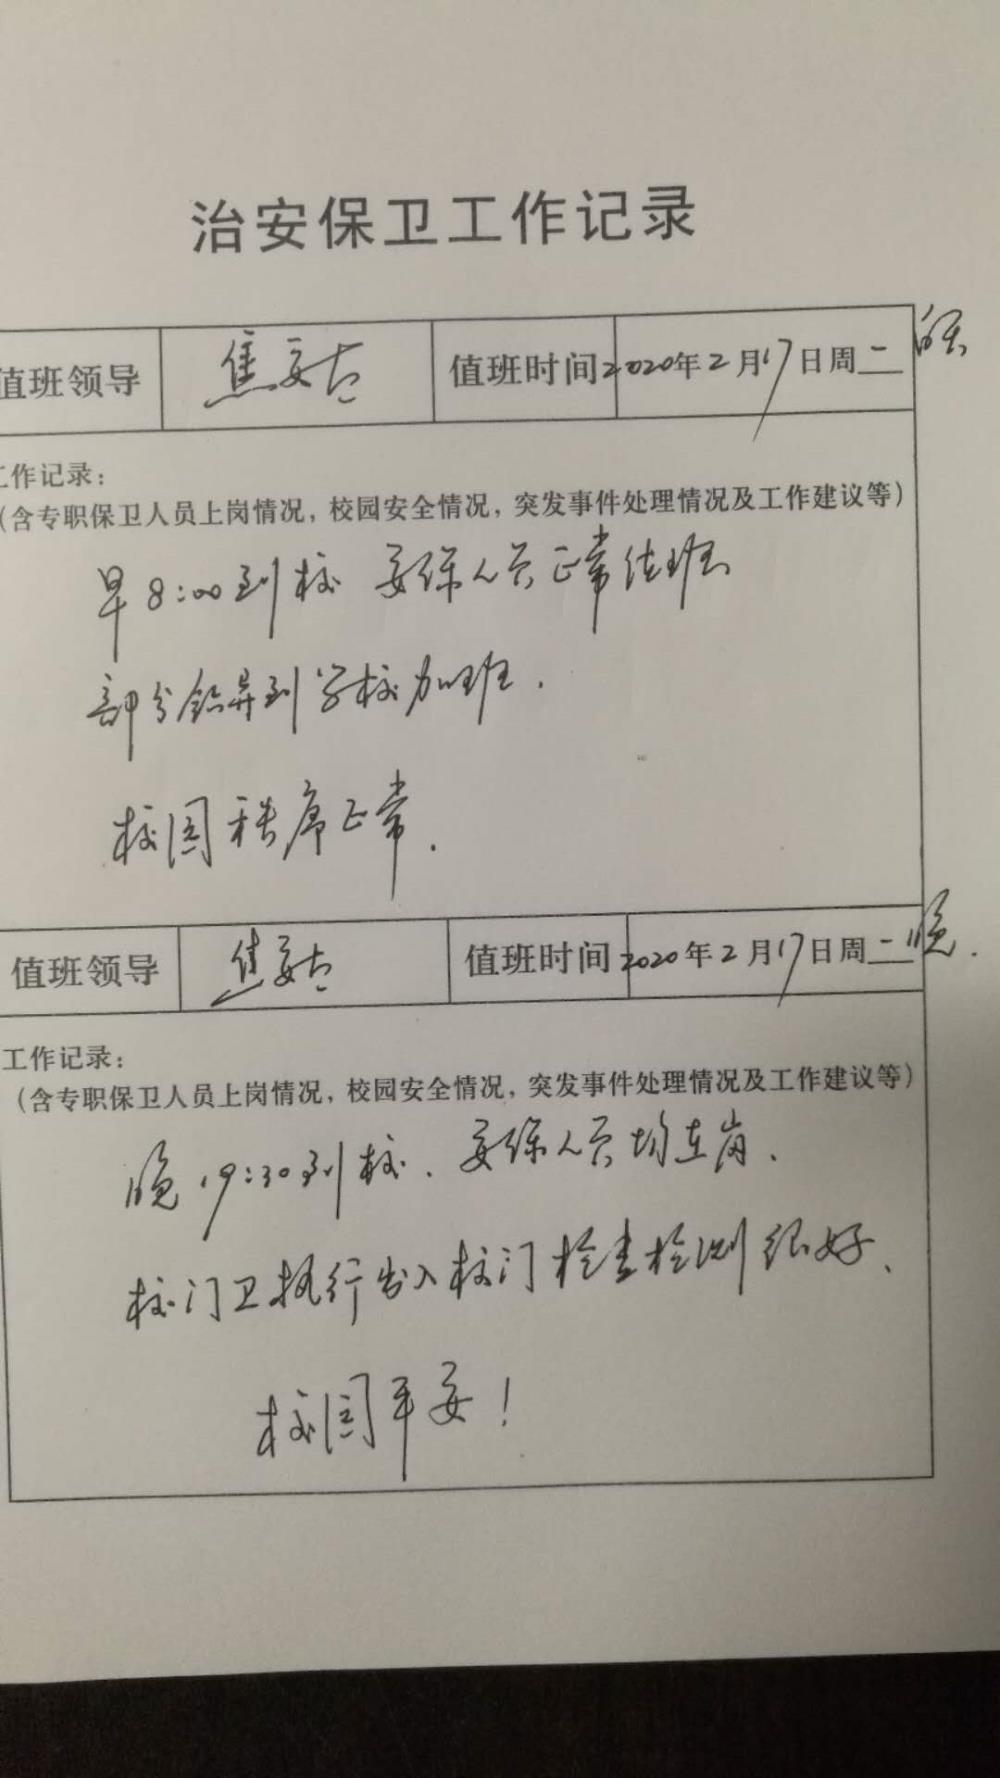 治安保卫工作记录
值班领导 焦安 值班时间 2020年2月17日周二
工作记录:
(含专职保卫人员上岗情况,校园安全情况,突发事件处理情况及工作建议等)
早8:00到校 安保人员正常值班
部分领导到学校加班.
校园秩序正常.
值班领导 焦安 值班时间 2020年2月17日周二晚.
工作记录:
(含专职保卫人员上岗情况,校园安全情况,突发事件处理情况及工作建议等)
晚19:30到校. 安保人员均在岗.
校门卫执行出入校门检查检测很好、
校园平安!